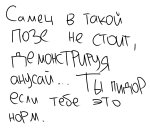 Самец в такой
позе не стоит,
демонстрируя
анусай... Ты пидор
если тебе это
норм.